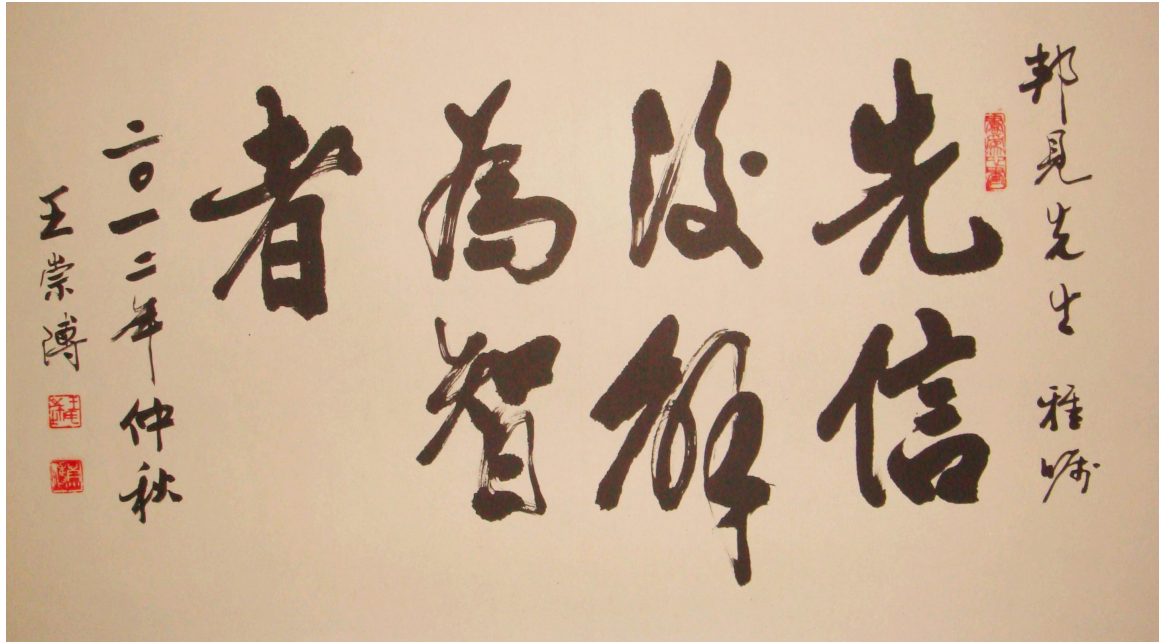 邦見先生 雅嘱
先信
後解
為智
者
二〇一二年仲秋
王崇溥